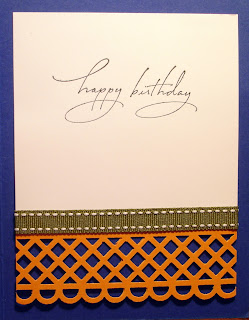 happy birthday